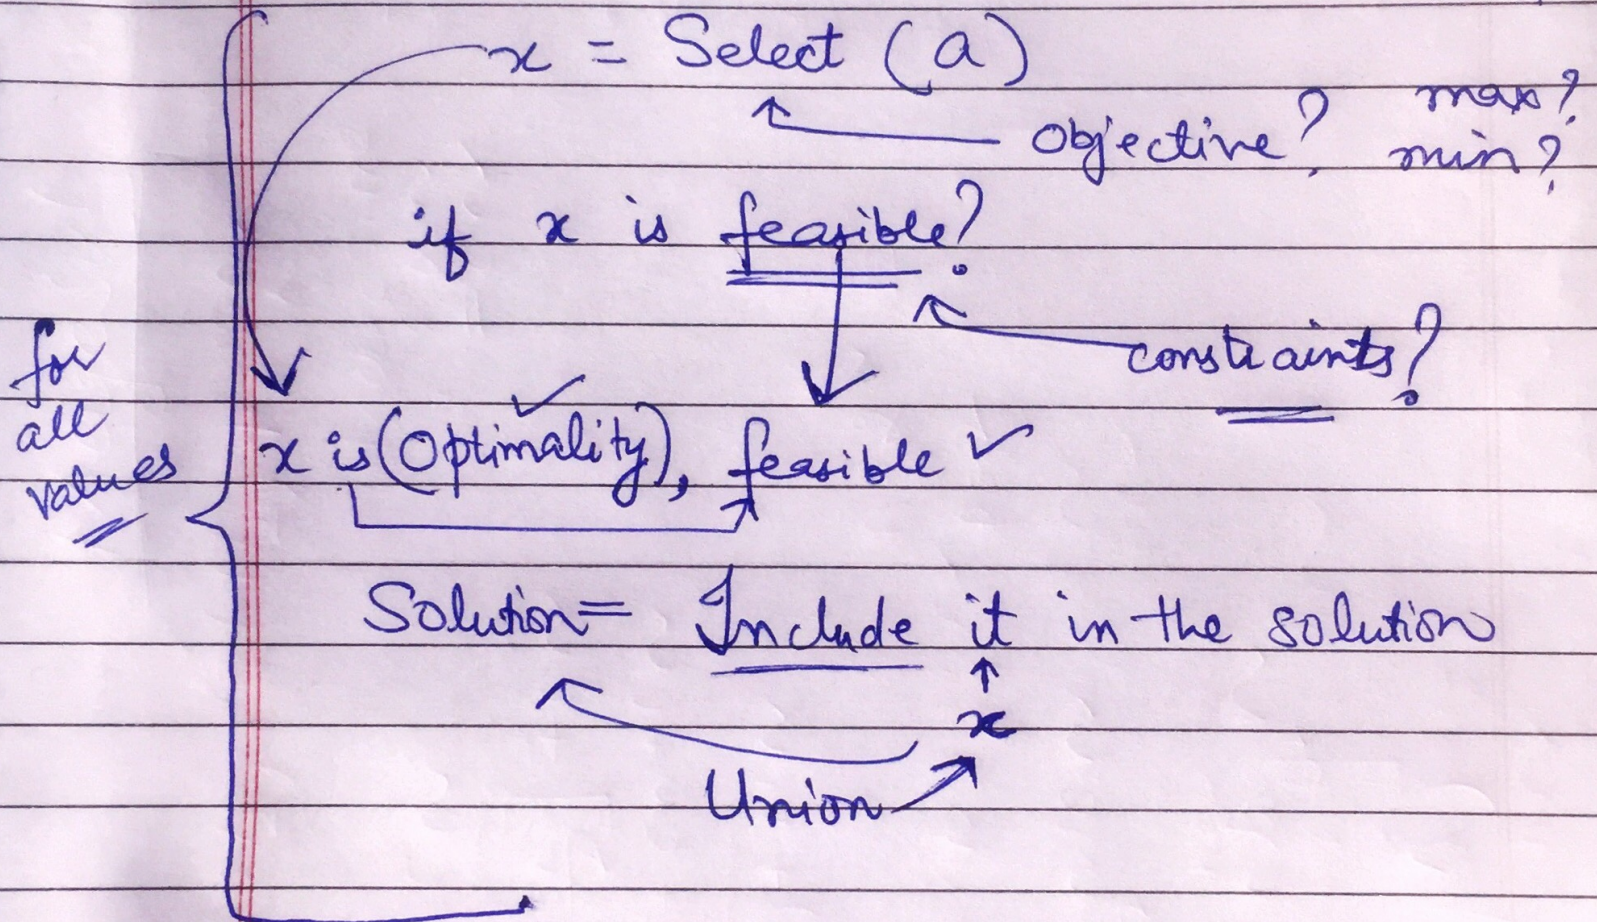 x = Select (a)
Objective? max?
min?
if x is feasible?
constraints?
for
all
values
x is (Optimality), feasible ✓
Solution = Include it in the solution
x
Union